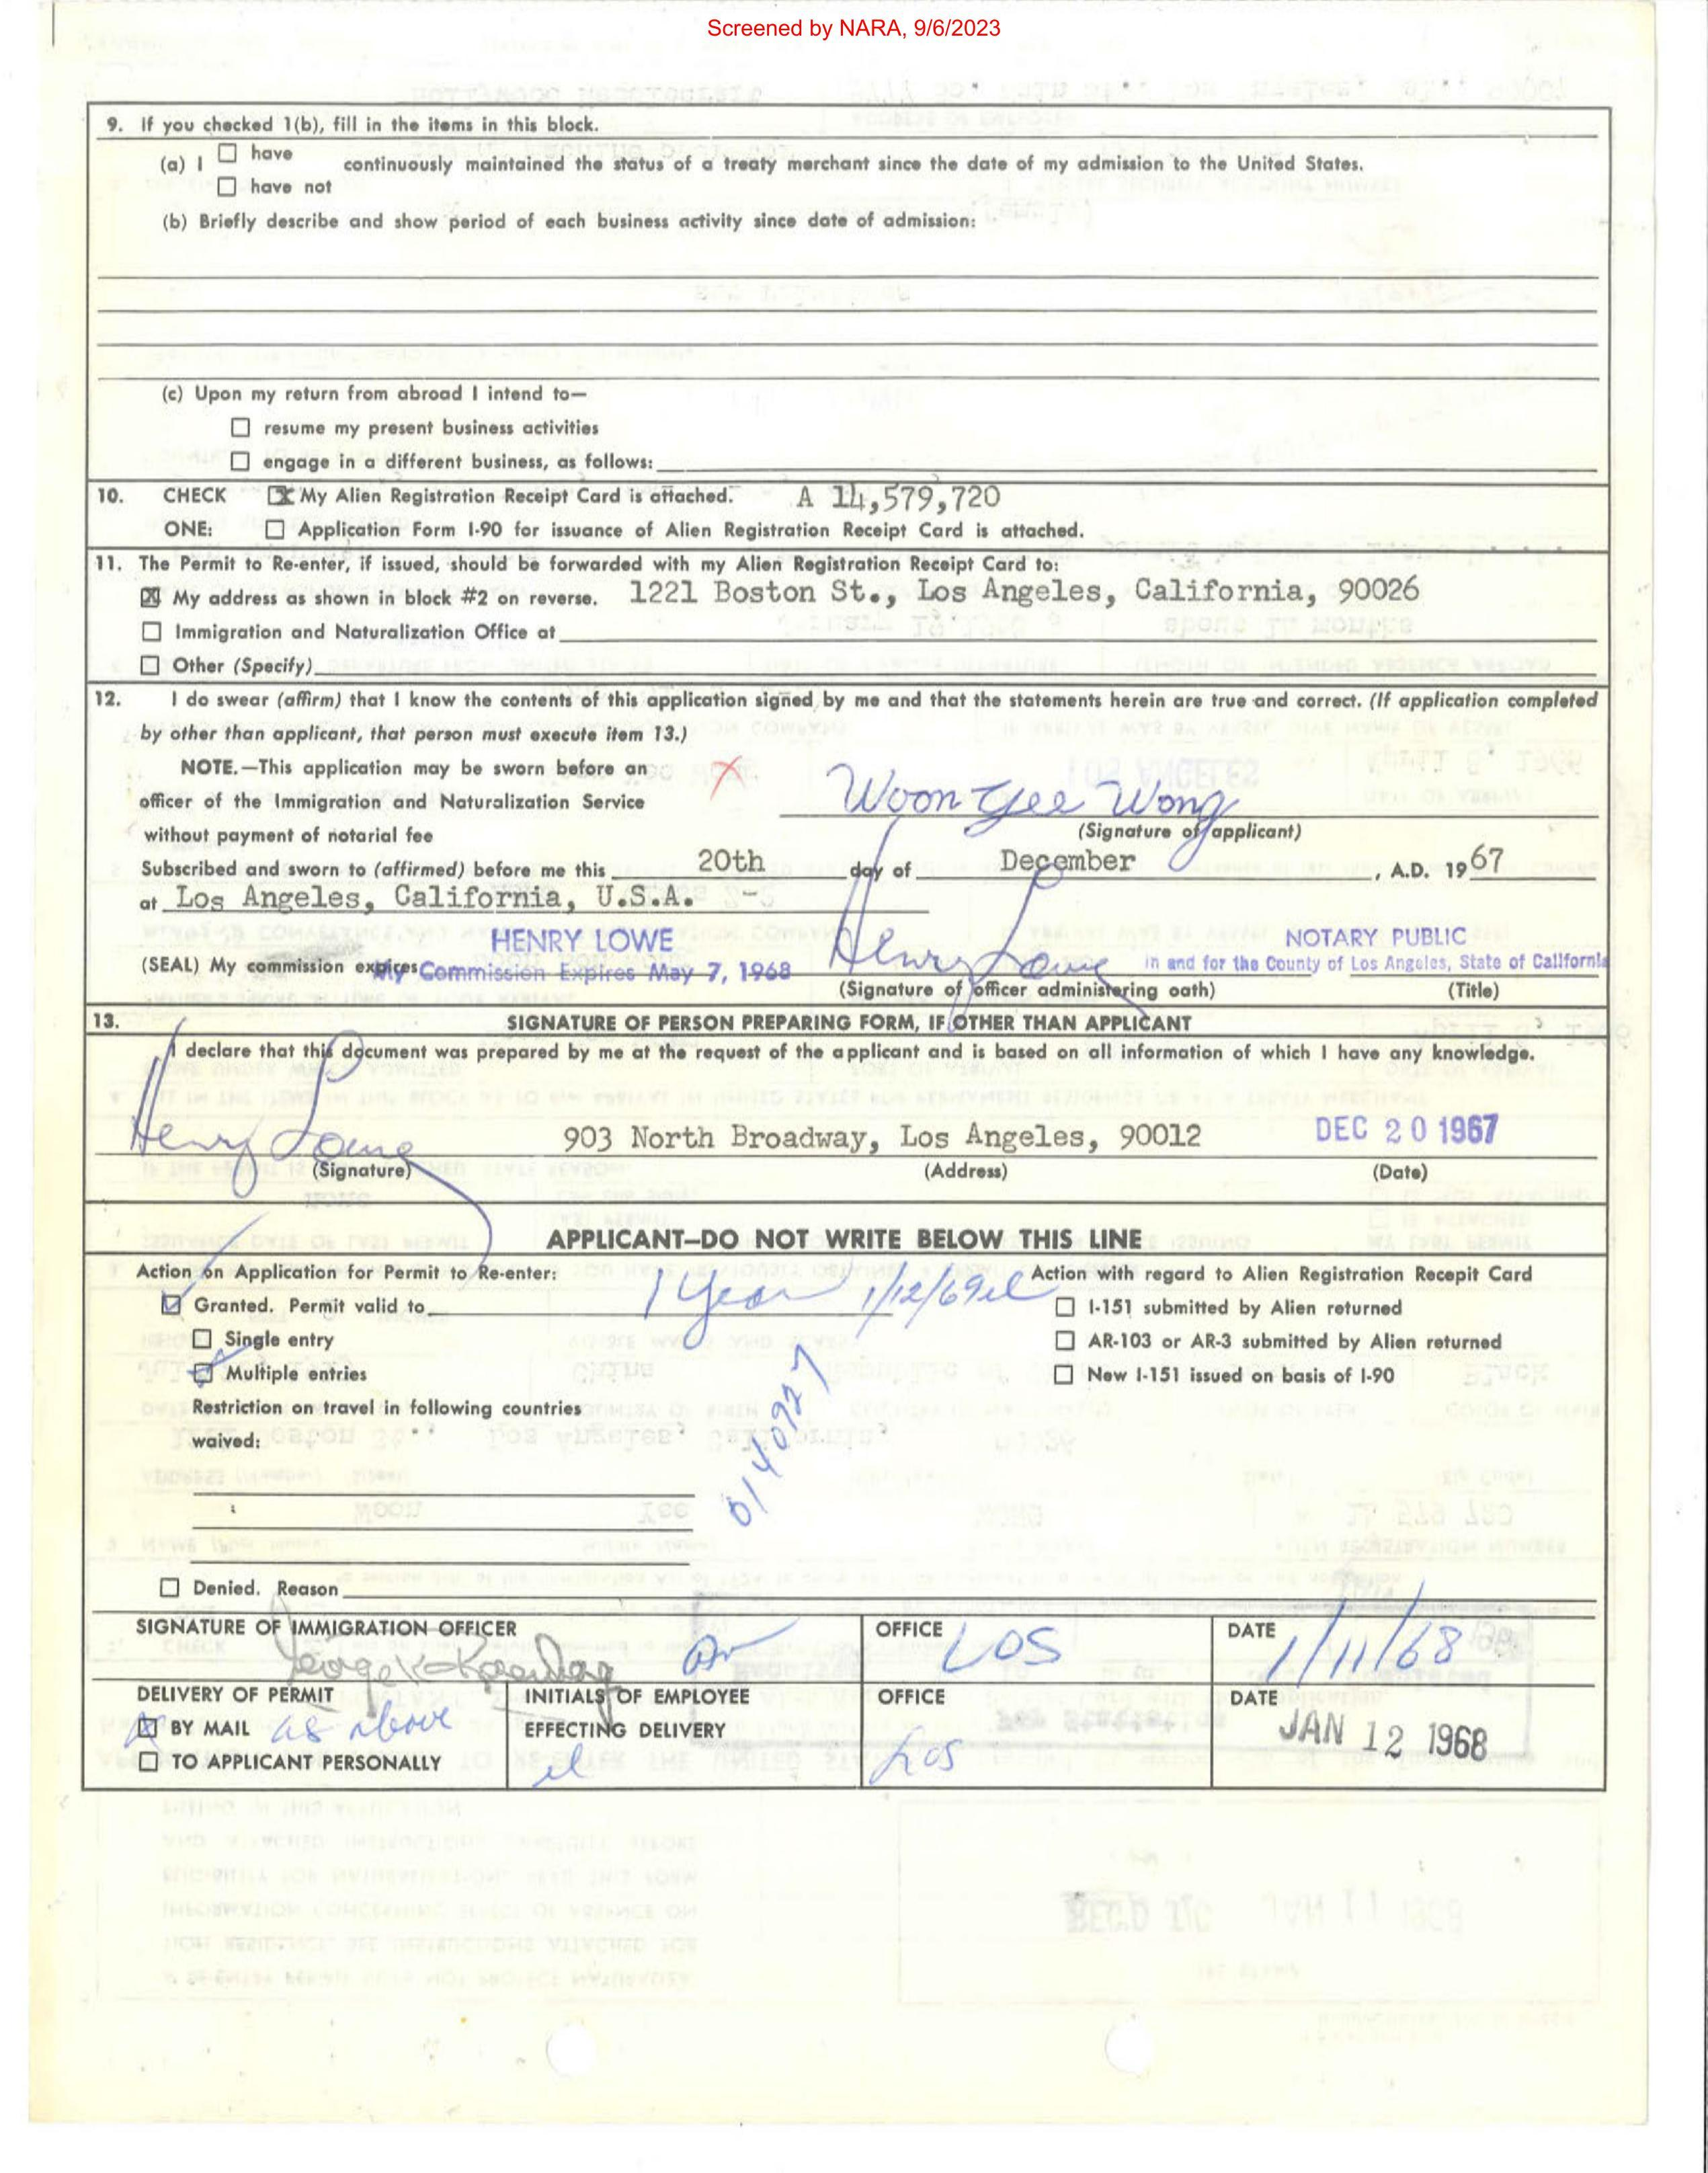 Screened by NARA, 9/6/2023
9. If you checked 1(b), fill in the items in this block.
(a) I ☐ have
continuously maintained the status of a treaty merchant since the date of my admission to the United States.
☐ have not
(b) Briefly describe and show period of each business activity since date of admission:
(c) Upon my return from abroad I intend to—
☐ resume my present business activities
☐ engage in a different business, as follows:
10. CHECK ☒ My Alien Registration Receipt Card is attached. A 14,579,720
ONE: ☐ Application Form I-90 for issuance of Alien Registration Receipt Card is attached.
11. The Permit to Re-enter, if issued, should be forwarded with my Alien Registration Receipt Card to:
☒ My address as shown in block #2 on reverse. 1221 Boston St., Los Angeles, California, 90026
☐ Immigration and Naturalization Office at
☐ Other (Specify)
12. I do swear (affirm) that I know the contents of this application signed by me and that the statements herein are true and correct. (If application completed
by other than applicant, that person must execute item 13.)
NOTE.—This application may be sworn before an X
officer of the Immigration and Naturalization Service Woon Yee Wong
without payment of notarial fee (Signature of applicant)
Subscribed and sworn to (affirmed) before me this 20th day of December, A.D. 1967
at Los Angeles, California, U.S.A. --
HENRY LOWE Henry Lowe NOTARY PUBLIC
(SEAL) My commission expires My Commission Expires May 7, 1968 in and for the County of Los Angeles, State of California
(Signature of officer administering oath) (Title)
13. SIGNATURE OF PERSON PREPARING FORM, IF OTHER THAN APPLICANT
I declare that this document was prepared by me at the request of the applicant and is based on all information of which I have any knowledge.
Henry Lowe 903 North Broadway, Los Angeles, 90012 DEC 20 1967
(Signature) (Address) (Date)
APPLICANT—DO NOT WRITE BELOW THIS LINE
Action on Application for Permit to Re-enter: Action with regard to Alien Registration Recepit Card
☑ Granted. Permit valid to 1 Year 1/12/69 el ☐ I-151 submitted by Alien returned
☐ Single entry ☐ AR-103 or AR-3 submitted by Alien returned
☑ Multiple entries ☐ New I-151 issued on basis of I-90
Restriction on travel in following countries
waived:
☐ Denied. Reason
SIGNATURE OF IMMIGRATION OFFICER OFFICE LOS DATE 1/11/68
DELIVERY OF PERMIT INITIALS OF EMPLOYEE OFFICE DATE
☒ BY MAIL as above EFFECTING DELIVERY JAN 12 1968
☐ TO APPLICANT PERSONALLY el Los